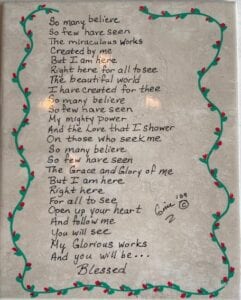 So many believe
So few have seen
The miraculous works
Created by me
But I am here
Right here for all to see
The beautiful world
I have created for thee
So many believe
So few have seen
My mighty power
And the Love that I shower
On those who seek me
So many believe
So few have seen
The Grace and Glory of me
But I am here
Right here
For all to see
Open up your heart
And follow me
You will see
My Glorious works
And you will be...
Blessed
'09
©